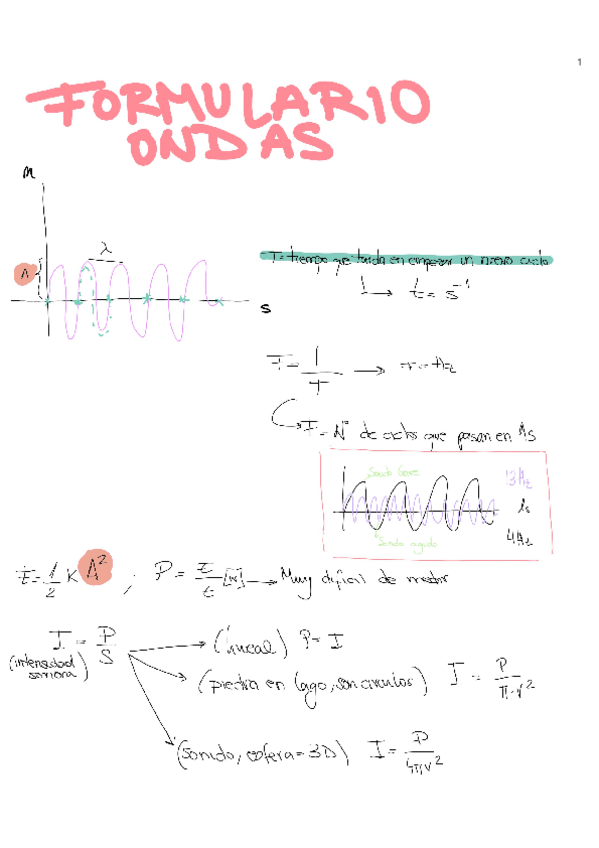 1
FORMULARIO
ONDAS
m
λ
A
T = tiempo que tarda en empezar un nuevo ciclo
t = s⁻¹
s
F = 1/T → F = Hz
F = Nº de ciclos que pasan en 1s
Sonido Grave
13 Hz
1s
Sonido agudo
4 Hz
E = 1/2 K A² ; P = E/t [W] → Muy difícil de medir
I = P/S
(intensidad sonora)
(lineal) P = I
(piedra en lago, son circulos) I = P/π·r²
(sonido, esfera = 3D) I = P/4πr²